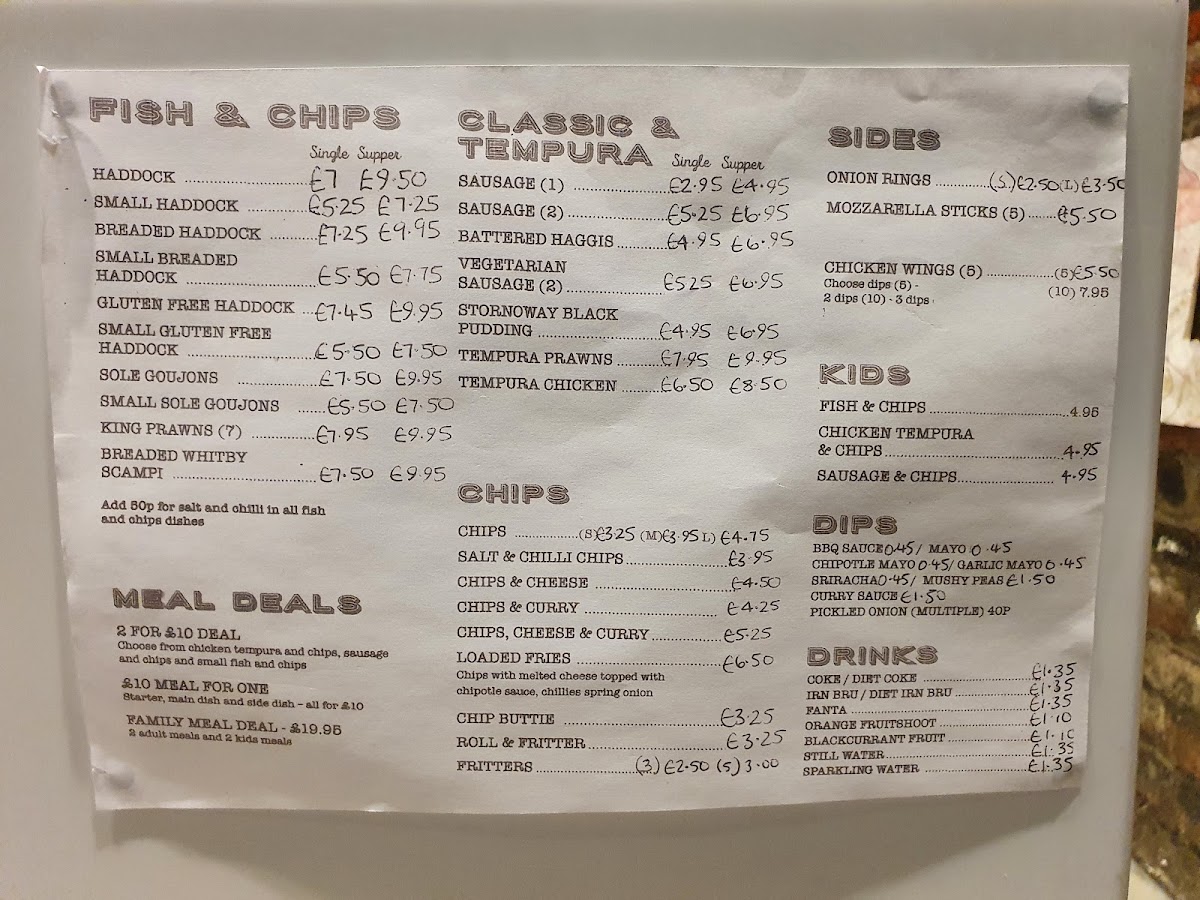 FISH & CHIPS
Single Supper
HADDOCK ........ £7 £9.50
SMALL HADDOCK ........ £5.25 £7.25
BREADED HADDOCK ........ £7.25 £9.95
SMALL BREADED
HADDOCK ........ £5.50 £7.75
GLUTEN FREE HADDOCK ... £7.45 £9.95
SMALL GLUTEN FREE
HADDOCK ........ £5.50 £7.50
SOLE GOUJONS ........ £7.50 £9.95
SMALL SOLE GOUJONS ...... £5.50 £7.50
KING PRAWNS (7) ........ £7.95 £9.95
BREADED WHITBY
SCAMPI ........ £7.50 £9.95
Add 50p for salt and chilli in all fish
and chips dishes
MEAL DEALS
2 FOR £10 DEAL
Choose from chicken tempura and chips, sausage
and chips and small fish and chips
£10 MEAL FOR ONE
Starter, main dish and side dish - all for £10
FAMILY MEAL DEAL - £19.95
2 adult meals and 2 kids meals
CLASSIC &
TEMPURA Single Supper
SAUSAGE (1) ........ £2.95 £4.95
SAUSAGE (2) ........ £5.25 £6.95
BATTERED HAGGIS ........ £4.95 £6.95
VEGETARIAN
SAUSAGE (2) ........ £525 £6.95
STORNOWAY BLACK
PUDDING ........ £4.95 £6.95
TEMPURA PRAWNS ........ £7.95 £9.95
TEMPURA CHICKEN ........ £6.50 £8.50
CHIPS
CHIPS ........ (S)£3.25 (M)£3.95 L) £4.75
SALT & CHILLI CHIPS ........ £3.95
CHIPS & CHEESE ........ £4.50
CHIPS & CURRY ........ £4.25
CHIPS, CHEESE & CURRY ........ £5.25
LOADED FRIES ........ £6.50
Chips with melted cheese topped with
chipotle sauce, chillies spring onion
CHIP BUTTIE ........ £3.25
ROLL & FRITTER ........ £3.25
FRITTERS ........ (3) £2.50 (5) 3.00
SIDES
ONION RINGS ........ (S)£2.50(L)£3.50
MOZZARELLA STICKS (5) ...... £5.50
CHICKEN WINGS (5) ........ (5)£5.50
Choose dips (5) -
2 dips (10) - 3 dips
(10) 7.95
KIDS
FISH & CHIPS ........ 4.95
CHICKEN TEMPURA
& CHIPS ........ 4.95
SAUSAGE & CHIPS ........ 4.95
DIPS
BBQ SAUCE 0.45/ MAYO 0.45
CHIPOTLE MAYO 0.45/ GARLIC MAYO 0.45
SRIRACHA 0.45/ MUSHY PEAS £1.50
CURRY SAUCE £1.50
PICKLED ONION (MULTIPLE) 40P
DRINKS
COKE / DIET COKE ........ £1.35
IRN BRU / DIET IRN BRU ........ £1.35
FANTA ........ £1.35
ORANGE FRUITSHOOT ........ £1.10
BLACKCURRANT FRUIT ........ £1.10
STILL WATER ........ £1.35
SPARKLING WATER ........ £1.35